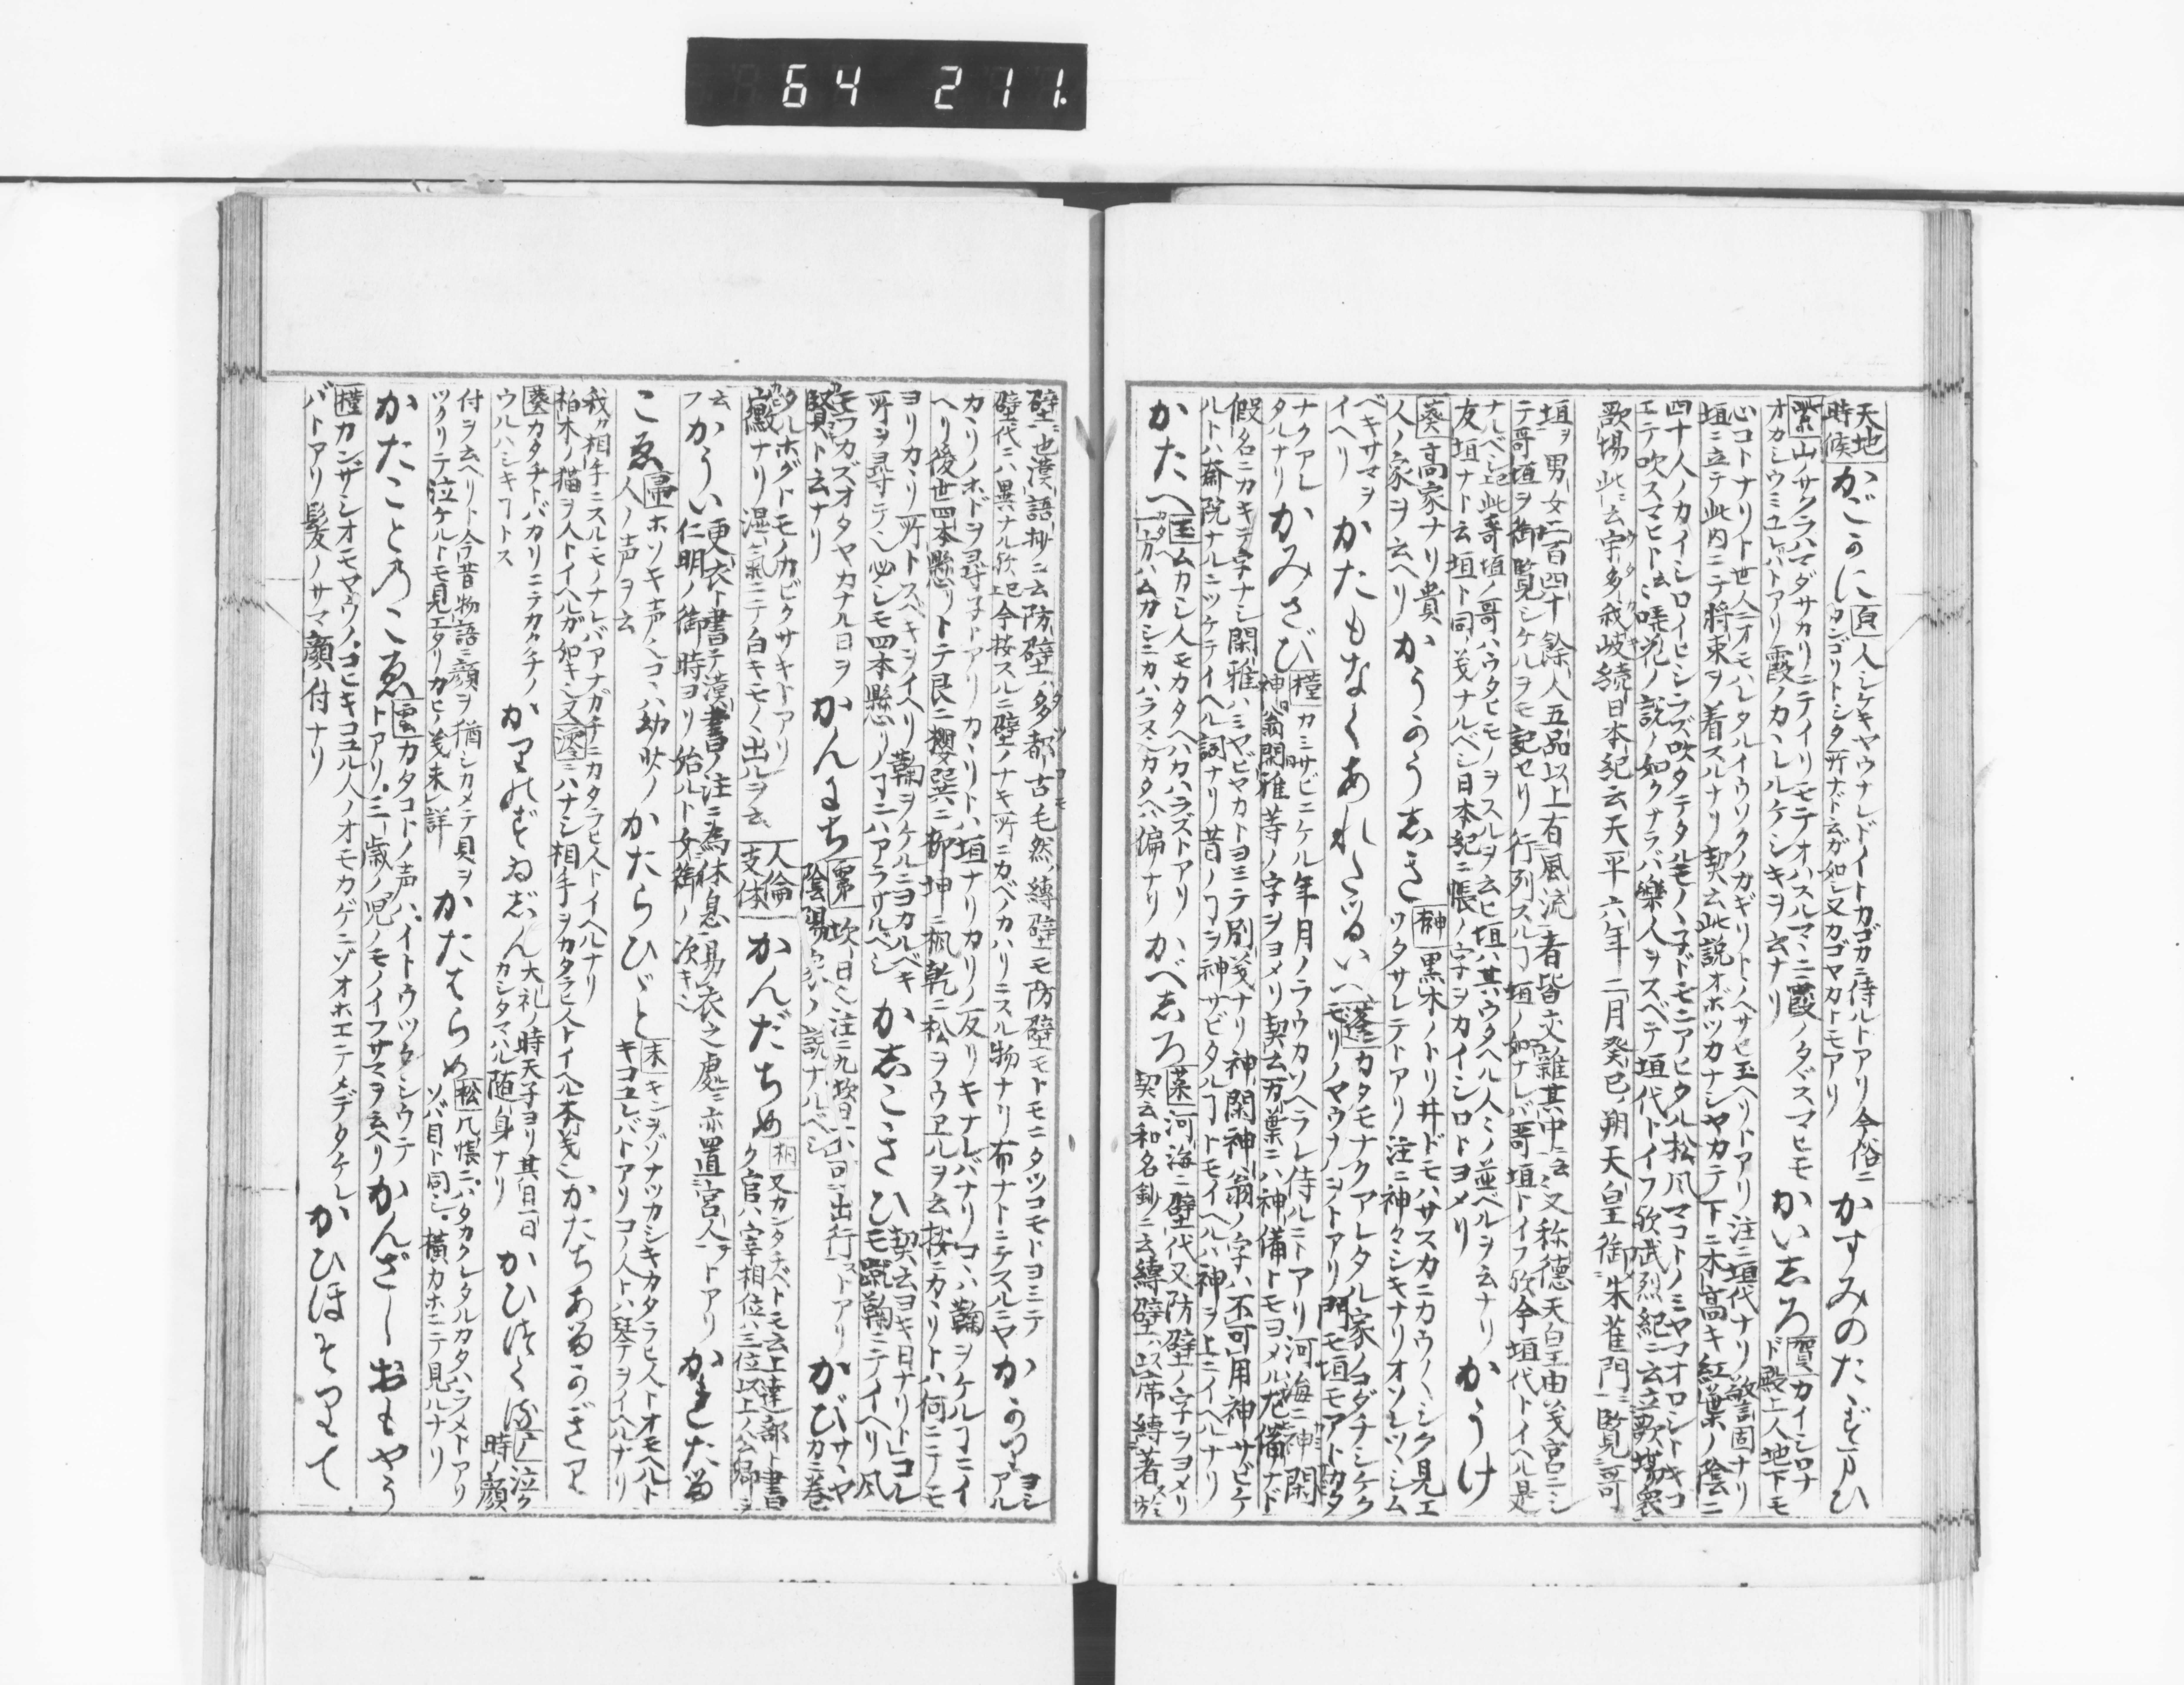 64 211.
天地
時候
かごかに 頁 人シケキヤウナレドイトカゴカニ侍ルトアリ今俗ニ
タンゴリトシタ所ナド云ガ如シ又カゴヤカトモアリ
かすみのたゞずまひ
紫 山ノサクラハマダサカリニテイリモテオハスルマヽニ霞ノタヾスマヒモ
オカシウミユレバトアリ霞ノカヽレルケシキヲ云ナリ
かい志ろ 賀 カイシロナ
ド殿上人地下モ
心コトナリト世人ニオモハレタルイウソクノカギリトヽノヘサセ玉ヘリトアリ注ニ垣代ナリ警固ナリ
垣ニ立テ此内ニテ将束ヲ着スルナリ契云此説オボツカナシヤカテ下ニ木高キ紅葉ノ陰ニ
四十人ノカイシロイヒシラズ吹タテタルモノヽ子ドモニアヒタル松風マコトノミヤマオロシトキコ
エテ吹スマヒトハ
説ノ如クナラバ樂人ヲスベテ垣代トイフ歟武烈紀ニ云立歌場衆
歌場此ニ云宇多我岐続日本紀云天平六年二月癸巳朔天皇御朱雀門覧哥
垣ヲ男女二百四十餘人五品以上有風流者皆交雜其中云々又称徳天皇由義宮ニシ
テ哥垣ヲ御覧シケルヲモ記セリ行列スルヿ垣ノ如ナレバ哥垣トイフ歟今垣代トイヘル是
ナルベシ此哥垣ノ哥ハウタヒモノヲスルヲ云ヒ垣ハ其ウタヘル人々ノ並ベルヲ云ナリ
友垣ナト云垣ト同義ナルベシ日本紀ニ帳ノ字ヲカイシロトヨメリ
かうけ
葵 高家ナリ貴
人ノ家ヲ云ヘリ
かうのう志き 榊 黒木ノトリ井ドモハサスカニカウ〳〵シク見エ
ワタサレテトアリ注ニ神々シキナリオソレツヽシム
ベキサマヲ
イヘリ
かたもなくあれたるいへ 蓬 カタモナクアレタル家ノコダチシケク
モリノヤウナルヲトアリ門モ垣モアトカタ
ナクアレ
タルナリ
かみさび 橿 カミサビニケル年月ノラウカソヘラレ侍ルニトアリ河海ニ神閑
神翁閑雅等ノ字ヲヨメリ契云万葉ニハ神備トモヨメル尤備ナド
假名ニカキテ字ナシ閑雅ハミヤビヤカトヨミテ別義ナリ神閑神翁ノ字ハ不可用神サビケ
ルトハ斎院ナルニツケテイヘル詞ナリ昔ノヿヲ神サビタルヿトモイヘルハ神ヲ上ニイヘルナリ
かたへ 玉 ムカシ人モカタヘハカハラズトアリ
一方ハムカシニカハラヌ也カタヘハ偏ナリ
かべ志ろ 葉 河海ニ壁代又防壁ノ字ヲヨメリ
契云和名鈔ニ云縛壁ハ以席縛著於
壁ニ也漢語抄ニ云防壁多都古毛然縛壁モ防壁モトモニタツコモトヨミテ
壁代ニハ異ナル歟今按スルニ壁ノナキ所ニカベノカハリニスル物ナリ布ナトニテスルニヤ
かゝり ヨシ
アル
カヽリノホドヲ尋子トアリカヽリトハ垣ナリカリノ反リキナレバナリコヽハ鞠ヲケルヿニイ
ヘリ後世四本懸リトテ艮ニ櫻巽ニ柳坤ニ楓乾ニ松ヲウヱルヲ云按ニカヽリトハ何ニニテモ
ヨリカヽリ所トスベキヲイヘリ鞠ヲケルニヨカルベキ
所ヲ尋テ也必シモ四本懸リノヿニハアラサルベシ
か志こきひ 契云ヨキ日ナリトコレ
モ蹴鞠ニテイヘリ風
モフカズオタヤカナル日ヲ
賢ト云ナリ
かんにち 霧 坎日也注ニ九坎日不可出行ストアリ
陰陽家ノ説ナルベシ
かび サヽヤ
カニ巻
タルホグトモノカビクサキトアリ
黴ナリ湿氣ニテ白キモノヽ出ルヲ云
人倫
支体
かんだちめ 桐 又カンタチベトモ云上達部ト書
ク官ハ宰相位ハ三位以上ノ公卿ヲ
云
フ
かうい 更衣ト書テ漢書ノ注ニ為休息易衣之處亦置宮人トアリ
仁明ノ御時ヨリ始ルト女御ノ次キ也
かれたる
こゑ 帚 ホソキ声ヘコヽハ幼少ノ
人ノ声ヲ云
かたらひゞと 末 キンヲゾナツカシキカタラヒ人トオモヘルト
キコユレバトアリコノ人トハ琴ヲイヘルナリ
我カ相手ニスルモノナレバアナガチニカタラヒ人トイヘルナリ
柏木ノ猫ヲ人トイヘルガ如キ也又 澪 ニハナシ相手ヲカタラヒ人トイヘル本義也
かたちあるかぎり
葵 カタチトバカリニテカタチノ
ウルハシキヿトス
かりのずゐじん 大礼ノ時天子ヨリ其日一日
カシタマハル随身ナリ
かひ 泣ク
時ノ顔
付ヲ云ヘリト今昔物語ニ顔ヲ猶シカメテ貝ヲ
ツクリテ泣ケルトモ見エタリカヒノ義未詳
かたそらめ 松 几帳ニハタカクレタルカタハラメトアリ
ソバ目ト同シ横カホニテ見ルナリ
かたことのこゑ 雲 カタコトノ声ハイトウツクシウテ
トアリ三歳ノ児ノモノイフサマヲ云ヘリ
かんざしおもやう
橿 カンザシオモヤウノコヒキコユル人ノオモカゲニゾオホエテメデタケレ
バトアリ髪ノサマ顔付ナリ
かひほそりて